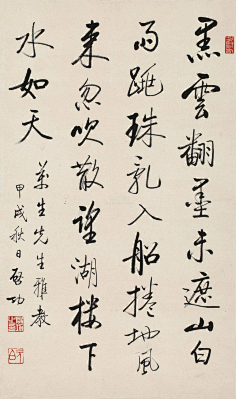 黑雲翻墨未遮山白
雨跳珠亂入船捲地風
來忽吹散望湖樓下
水如天
萬生先生雅教
甲戌秋日啓功